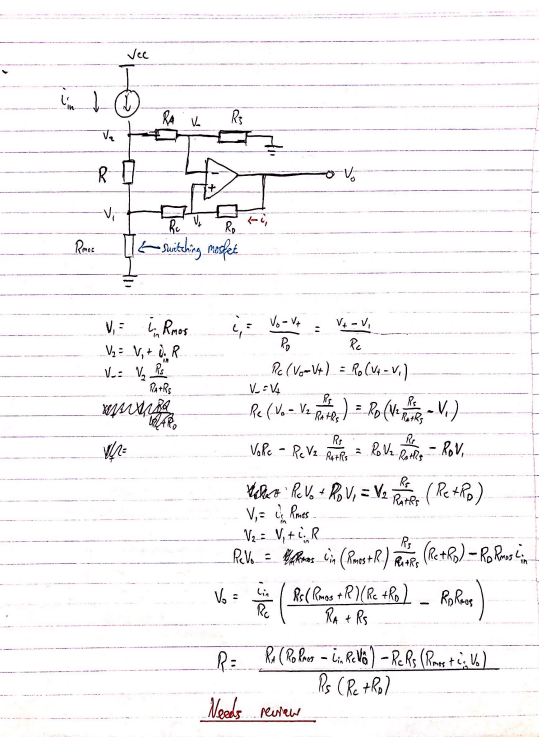 Vcc
i_in ↓
R_A V_- R_3
V_2
R
- +
V_o
V_1
R_C V_+ R_D ← i_1
R_mos ← switching mosfet
V_1 = i_in R_mos
V_2 = V_1 + i_in R
V_- = V_2 R_3/(R_A+R_3)
i_1 = (V_o - V_+)/R_D = (V_+ - V_1)/R_C
R_C (V_o - V_+) = R_D (V_+ - V_1)
V_- = V_+
R_C (V_o - V_2 R_3/(R_A+R_3)) = R_D (V_2 R_3/(R_A+R_3) - V_1)
V_o R_C - R_C V_2 R_3/(R_A+R_3) = R_D V_2 R_3/(R_A+R_3) - R_D V_1
R_C V_o + R_D V_1 = V_2 R_3/(R_A+R_3) (R_C + R_D)
V_1 = i_in R_mos
V_2 = V_1 + i_in R
R_C V_o = i_in (R_mos + R) R_3/(R_A+R_3) (R_C+R_D) - R_D R_mos i_in
V_o = i_in/R_C (R_3 (R_mos + R)(R_C + R_D)/(R_A + R_3) - R_D R_mos)
R = (R_A (R_D R_mos - i_in R_C V_o) - R_C R_3 (R_mos + i_in V_o))/(R_3 (R_C + R_D))
Needs review